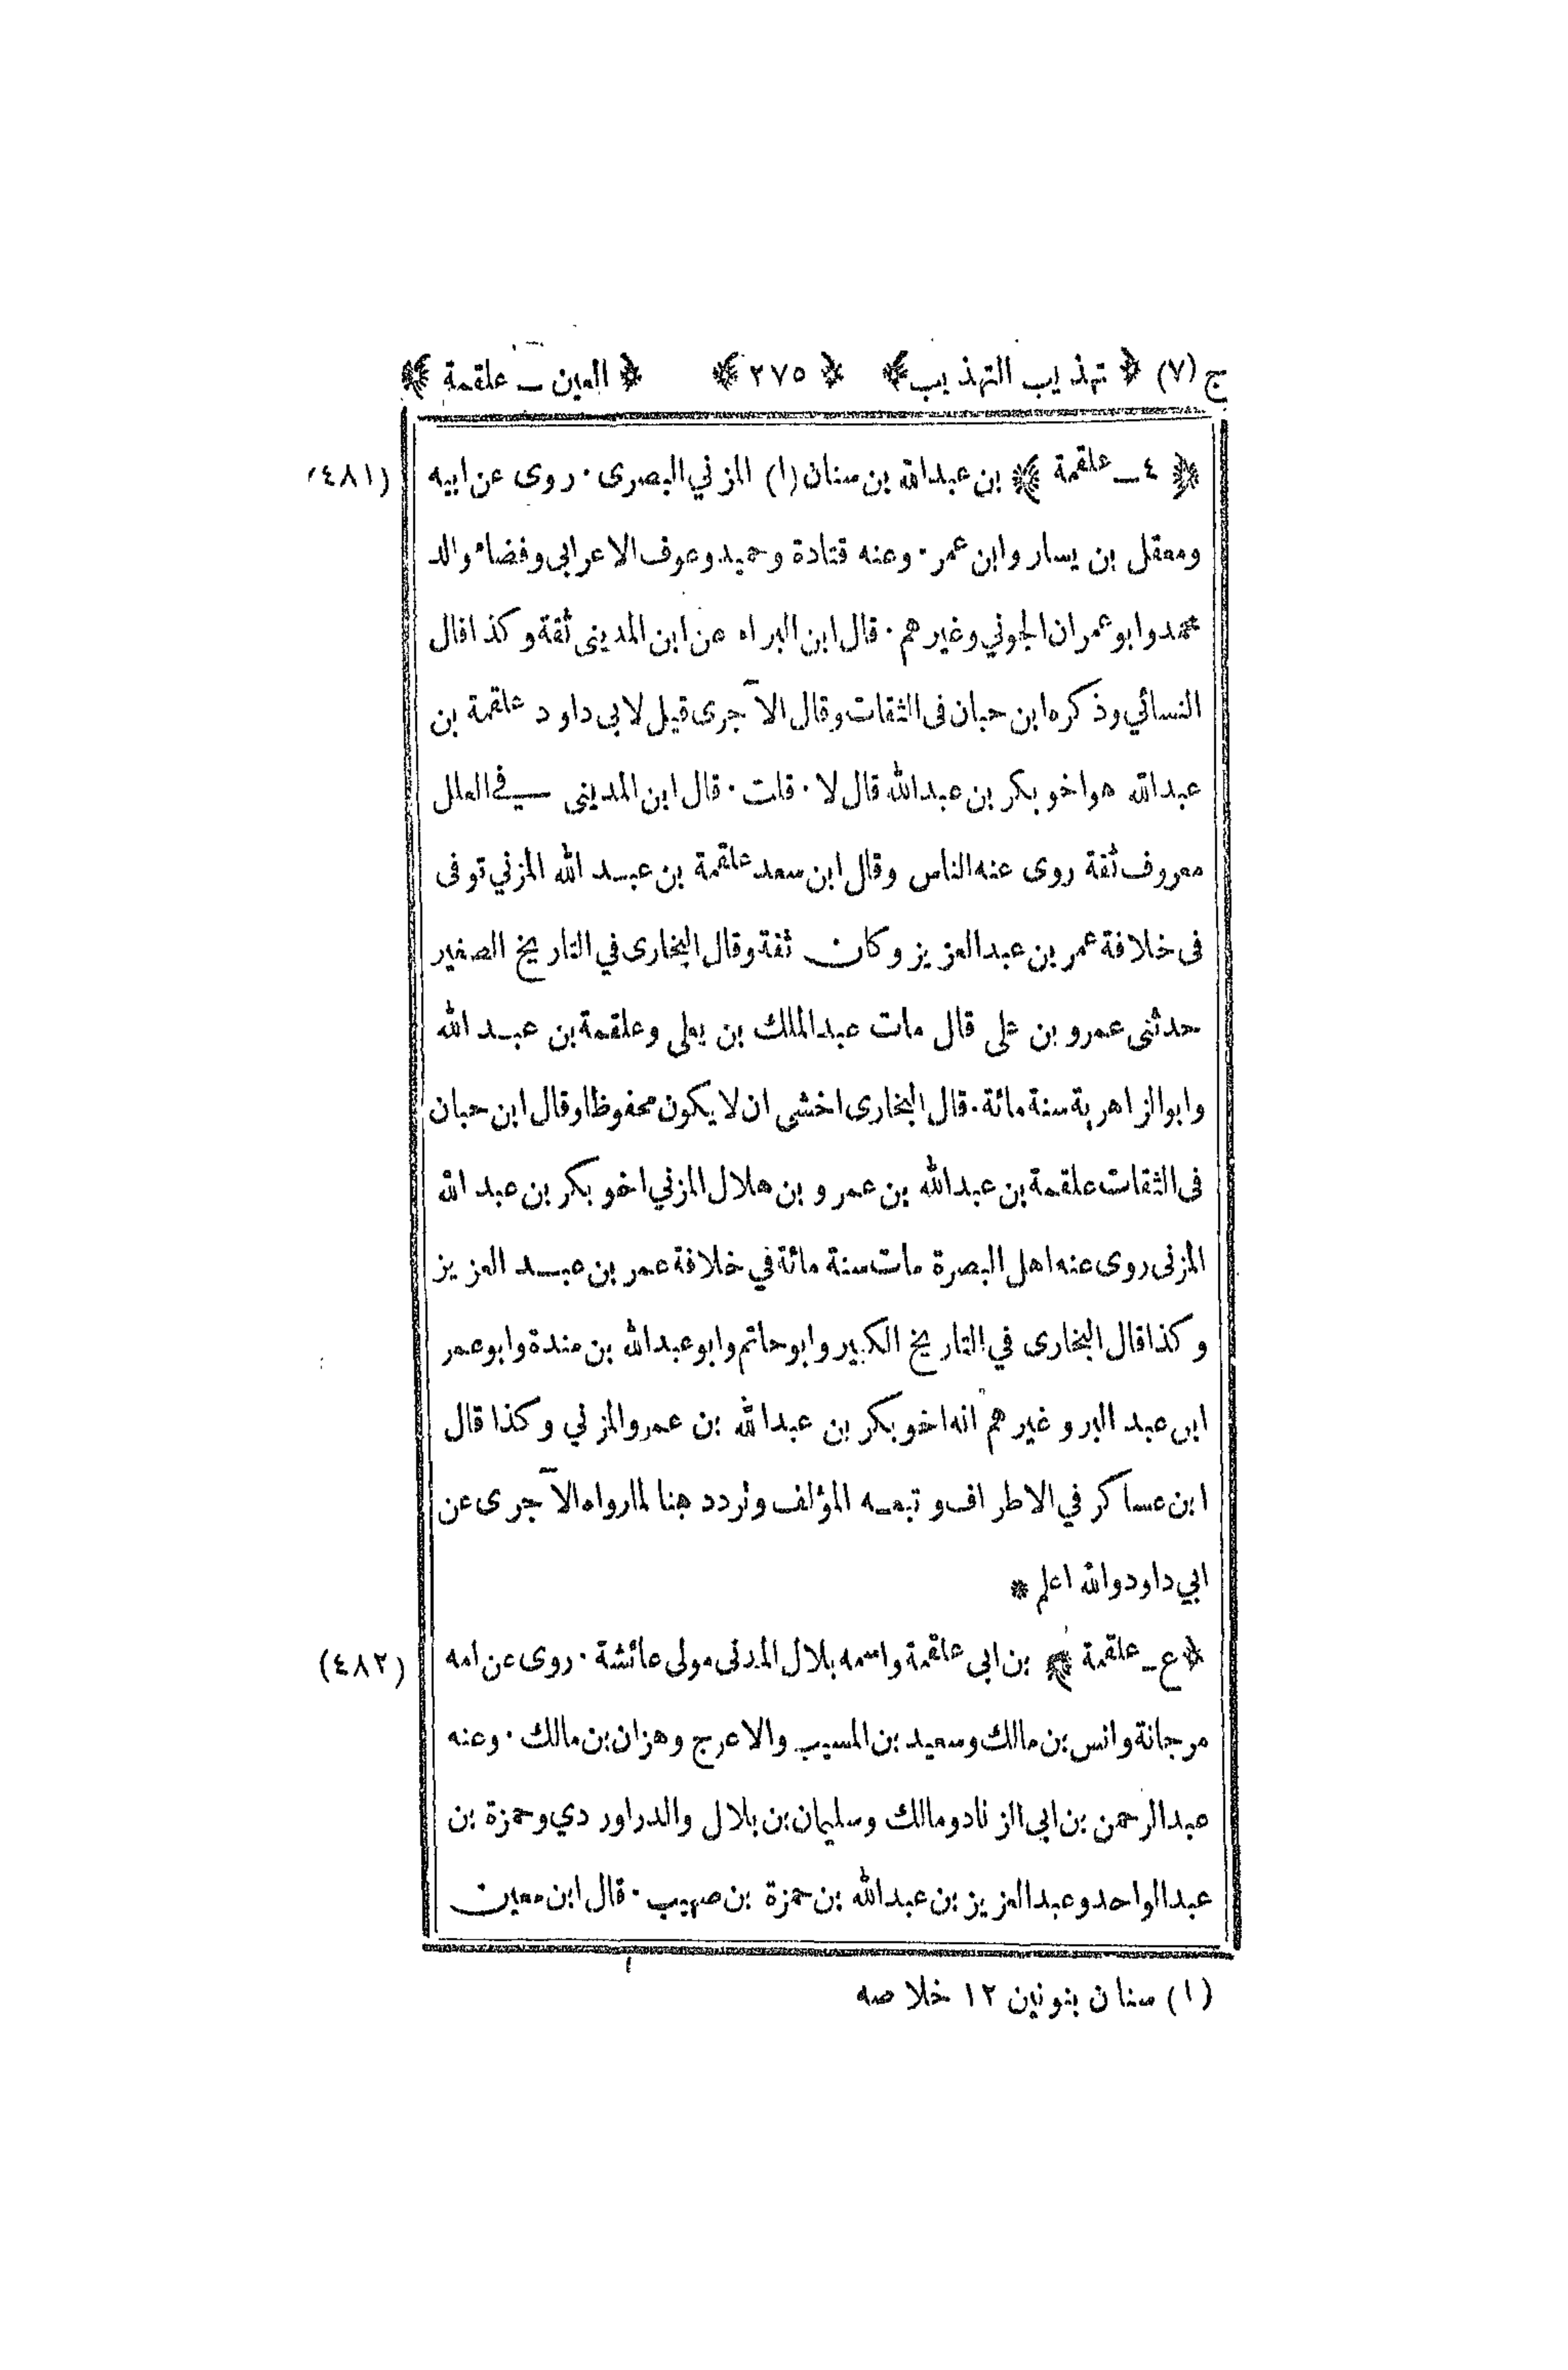 ج (٧) ﴿ تهذيب التهذيب ﴾ ﴿ ٢٧٥ ﴾ ﴿ العين ـ علقمة ﴾
﴿ ٤ ـ علقمة ﴾ بن عبدالله بن سنان (١) المزني البصرى · روى عن ابيه (٤٨١)
ومعقل بن يسار وابن عمر · وعنه قتادة وحميد وعوف الاعرابى وفضاء والد
محمد وابو عمران الجوني وغيرهم · قال ابن البراء عن ابن المدينى ثقة وكذا قال
النسائي وذكره ابن حبان فى الثقات وقال الآجرى قيل لابى داود علقمة بن
عبدالله هو اخو بكر بن عبدالله قال لا · قلت · قال ابن المدينى في العلل
معروف ثقة روى عنه الناس وقال ابن سعد علقمة بن عبد الله المزني توفى
فى خلافة عمر بن عبدالعزيز وكان ثقة وقال البخارى في التاريخ الصغير
حدثنى عمرو بن على قال مات عبدالملك بن يعلى وعلقمة بن عبد الله
وابو الزاهرية سنة مائة · قال البخارى اخشى ان لا يكون محفوظا وقال ابن حبان
فى الثقات علقمة بن عبدالله بن عمرو بن هلال المزني اخو بكر بن عبد الله
المزنى روى عنه اهل البصرة مات سنة مائة في خلافة عمر بن عبد العزيز
وكذا قال البخارى في التاريخ الكبير وابو حاتم وابو عبدالله بن مندة وابو عمر
ابن عبد البر وغيرهم انه اخو بكر بن عبدالله بن عمرو المزني وكذا قال
ابن عساكر في الاطراف وتبعه المؤلف وتردد هنا لما رواه الآجرى عن
ابي داود والله اعلم *
﴿ ع ـ علقمة ﴾ بن ابى علقمة واسمه بلال المدنى مولى عائشة · روى عن امه (٤٨٢)
مرجانة وانس بن مالك وسعيد بن المسيب والاعرج وهزان بن مالك · وعنه
عبدالرحمن بن ابى الزناد ومالك وسليمان بن بلال والدراوردي وحمزة بن
عبدالواحد وعبدالعزيز بن عبدالله بن حمزة بن صهيب · قال ابن معين
(١) سنان بنونين ١٢ خلاصه